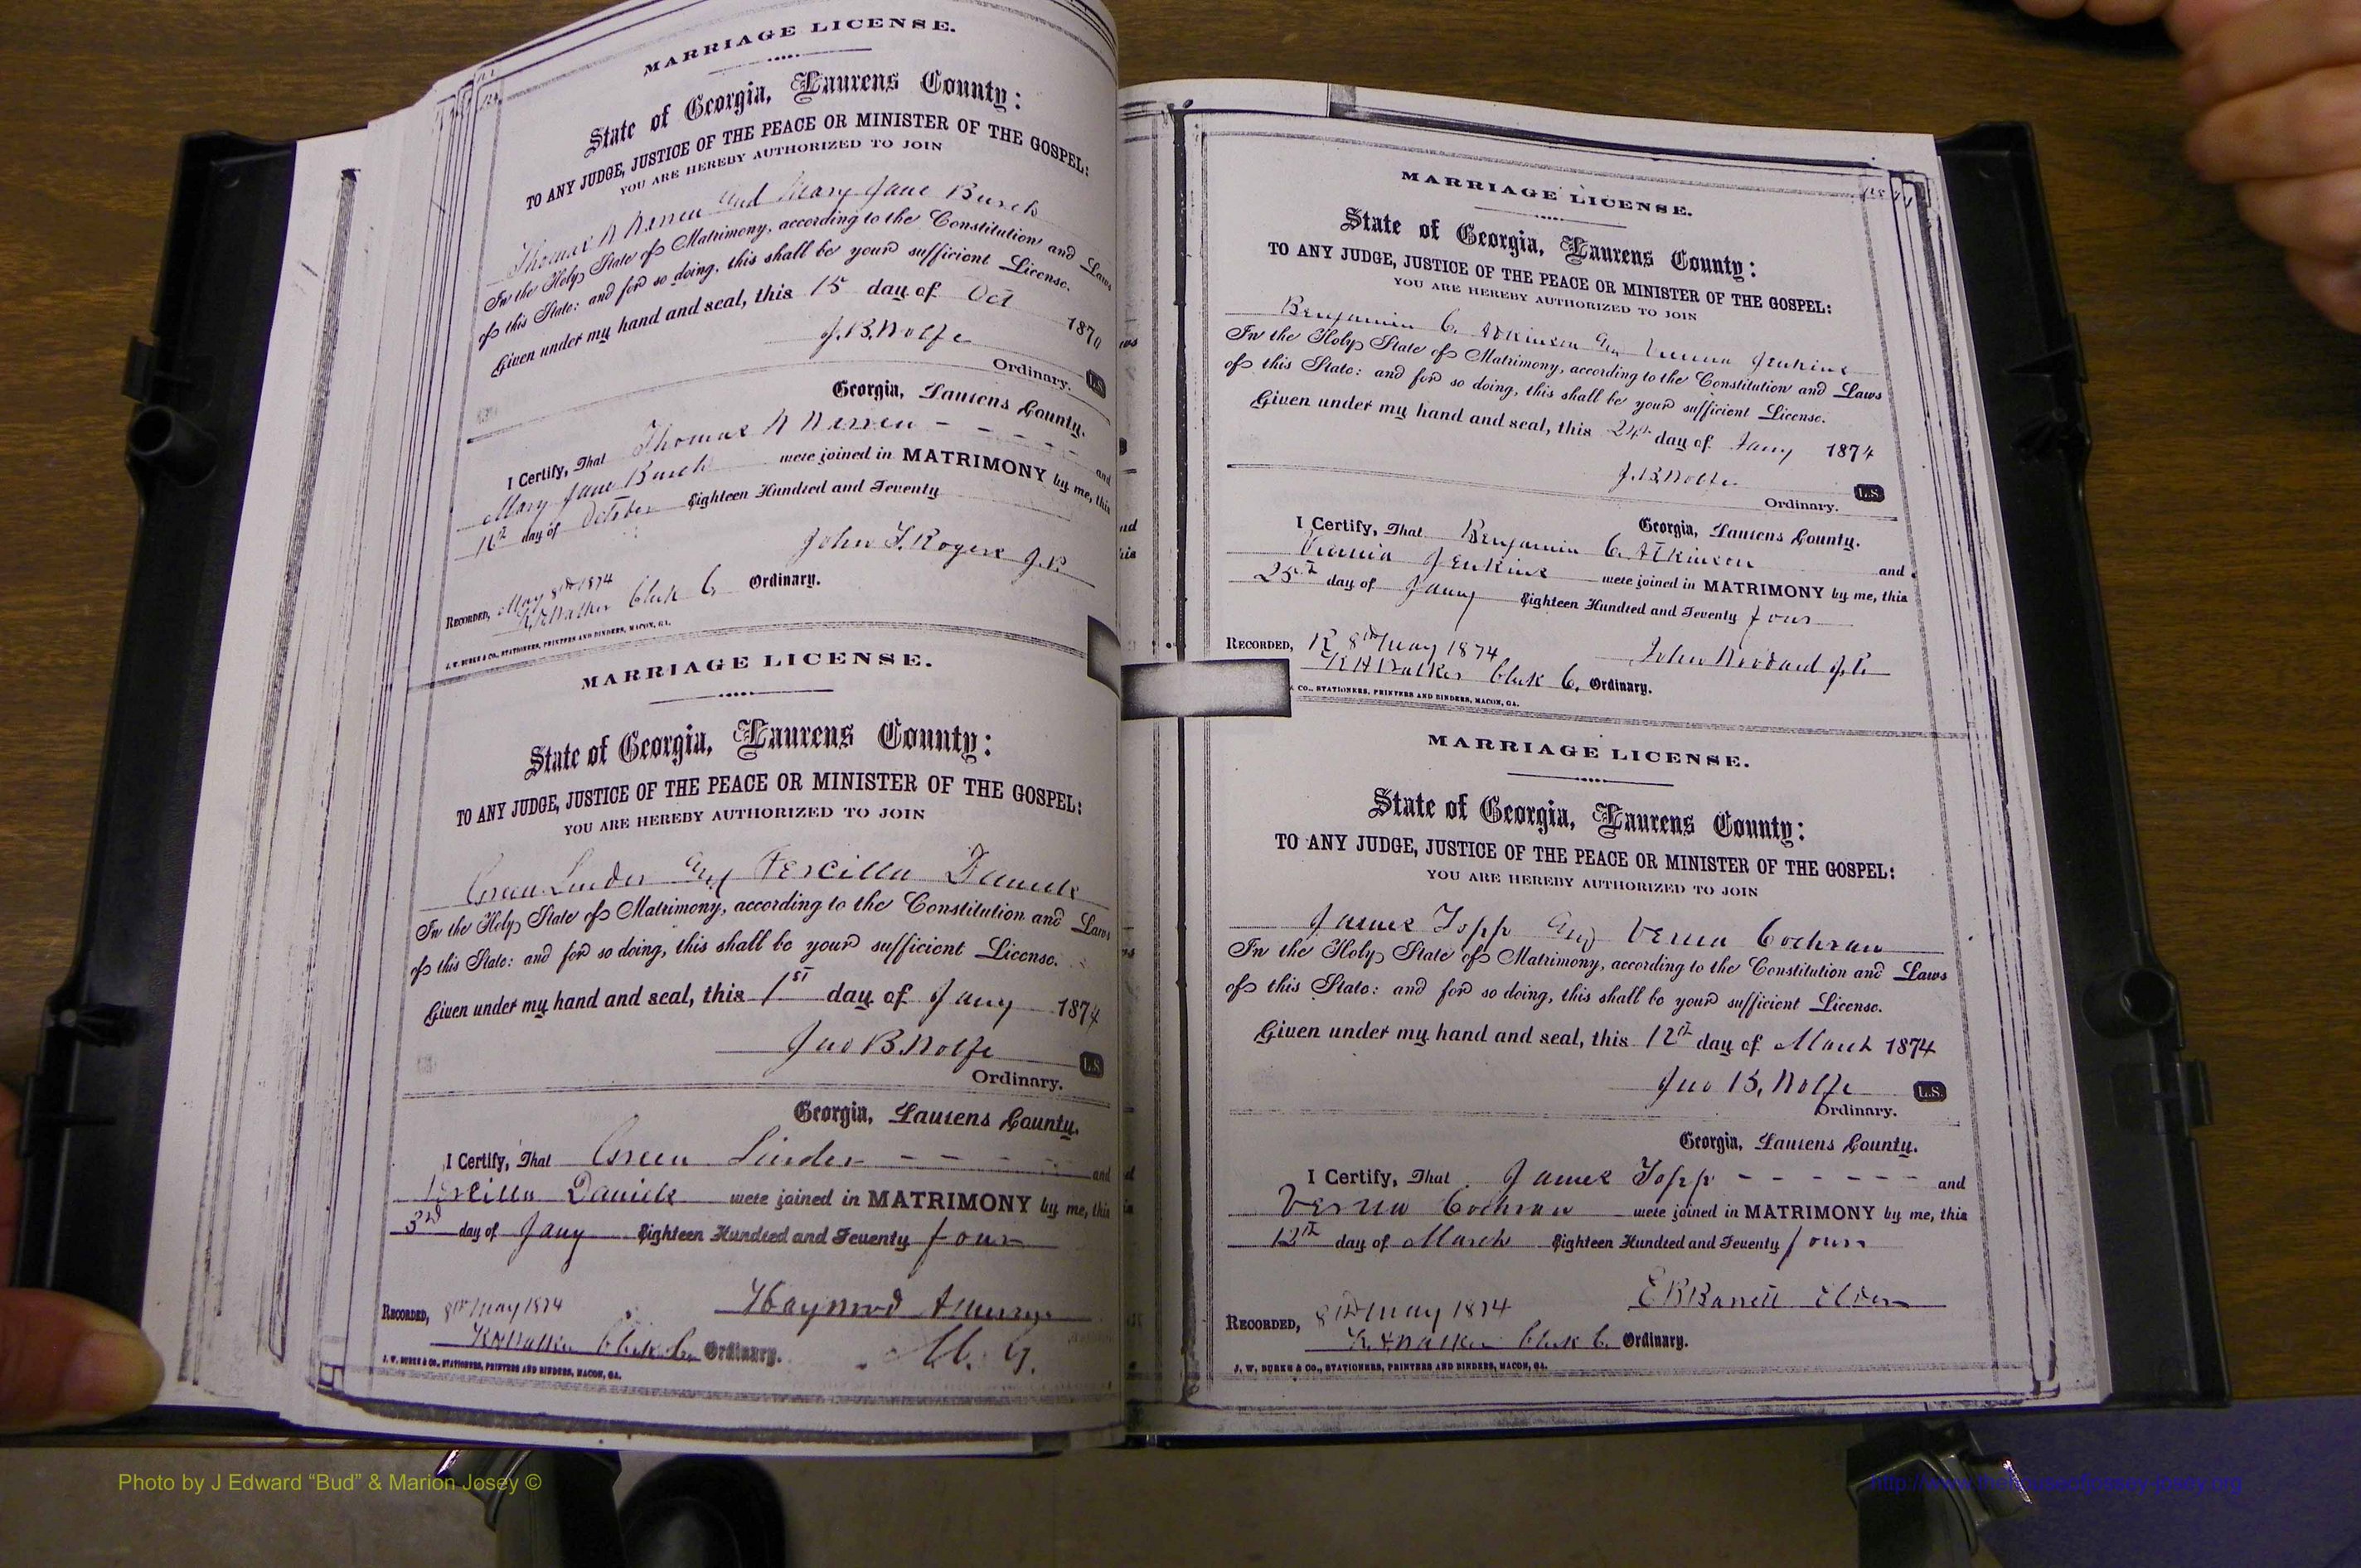 MARRIAGE LICENSE.
State of Georgia, Laurens County:
TO ANY JUDGE, JUSTICE OF THE PEACE OR MINISTER OF THE GOSPEL:
YOU ARE HEREBY AUTHORIZED TO JOIN
Thomas N and Mary Jane Burch
In the Holy State of Matrimony, according to the Constitution and Laws
of this State: and for so doing, this shall be your sufficient License.
Given under my hand and seal, this 15 day of Oct 1870
J. B. Wolfe
Ordinary. L.S.
Georgia, Laurens County.
I Certify, That Thomas N and
Mary Jane Burch were joined in MATRIMONY by me, this
16th day of October Eighteen Hundred and Seventy
John T. Rogers J.P.
RECORDED, May 8th 1874
Walker Clerk C. Ordinary.
J. W. BURKE & CO., STATIONERS, PRINTERS AND BINDERS, MACON, GA.
MARRIAGE LICENSE.
State of Georgia, Laurens County:
TO ANY JUDGE, JUSTICE OF THE PEACE OR MINISTER OF THE GOSPEL:
YOU ARE HEREBY AUTHORIZED TO JOIN
Green Linder and Daniels
In the Holy State of Matrimony, according to the Constitution and Laws
of this State: and for so doing, this shall be your sufficient License.
Given under my hand and seal, this 1st day of Jany 1874
Jno B. Wolfe
Ordinary. L.S.
Georgia, Laurens County.
I Certify, That Green Linder - - - - and
Daniels were joined in MATRIMONY by me, this
3rd day of Jany Eighteen Hundred and Seventy four
RECORDED, 8th May 1874
Walker Clerk C. Ordinary. M. G.
J. W. BURKE & CO., STATIONERS, PRINTERS AND BINDERS, MACON, GA.
MARRIAGE LICENSE.
State of Georgia, Laurens County:
TO ANY JUDGE, JUSTICE OF THE PEACE OR MINISTER OF THE GOSPEL:
YOU ARE HEREBY AUTHORIZED TO JOIN
Benjamin C. Atkinson and Jenkins
In the Holy State of Matrimony, according to the Constitution and Laws
of this State: and for so doing, this shall be your sufficient License.
Given under my hand and seal, this 24th day of Jany 1874
J. B. Wolfe
Ordinary. L.S.
Georgia, Laurens County.
I Certify, That Benjamin C. Atkinson and
Jenkins were joined in MATRIMONY by me, this
25th day of Jany Eighteen Hundred and Seventy four
RECORDED, 8th May 1874 John J.P.
Walker Clerk C. Ordinary.
CO., STATIONERS, PRINTERS AND BINDERS, MACON, GA.
MARRIAGE LICENSE.
State of Georgia, Laurens County:
TO ANY JUDGE, JUSTICE OF THE PEACE OR MINISTER OF THE GOSPEL:
YOU ARE HEREBY AUTHORIZED TO JOIN
James Topp and Cochran
In the Holy State of Matrimony, according to the Constitution and Laws
of this State: and for so doing, this shall be your sufficient License.
Given under my hand and seal, this 12th day of March 1874
Jno B. Wolfe L.S.
Ordinary.
Georgia, Laurens County.
I Certify, That James Topp - - - - - - and
Cochran were joined in MATRIMONY by me, this
12th day of March Eighteen Hundred and Seventy four
Elder
RECORDED, 8th May 1874
Walker Clerk C. Ordinary.
J. W. BURKE & CO., STATIONERS, PRINTERS AND BINDERS, MACON, GA.
Photo by J Edward “Bud” & Marion Josey ©